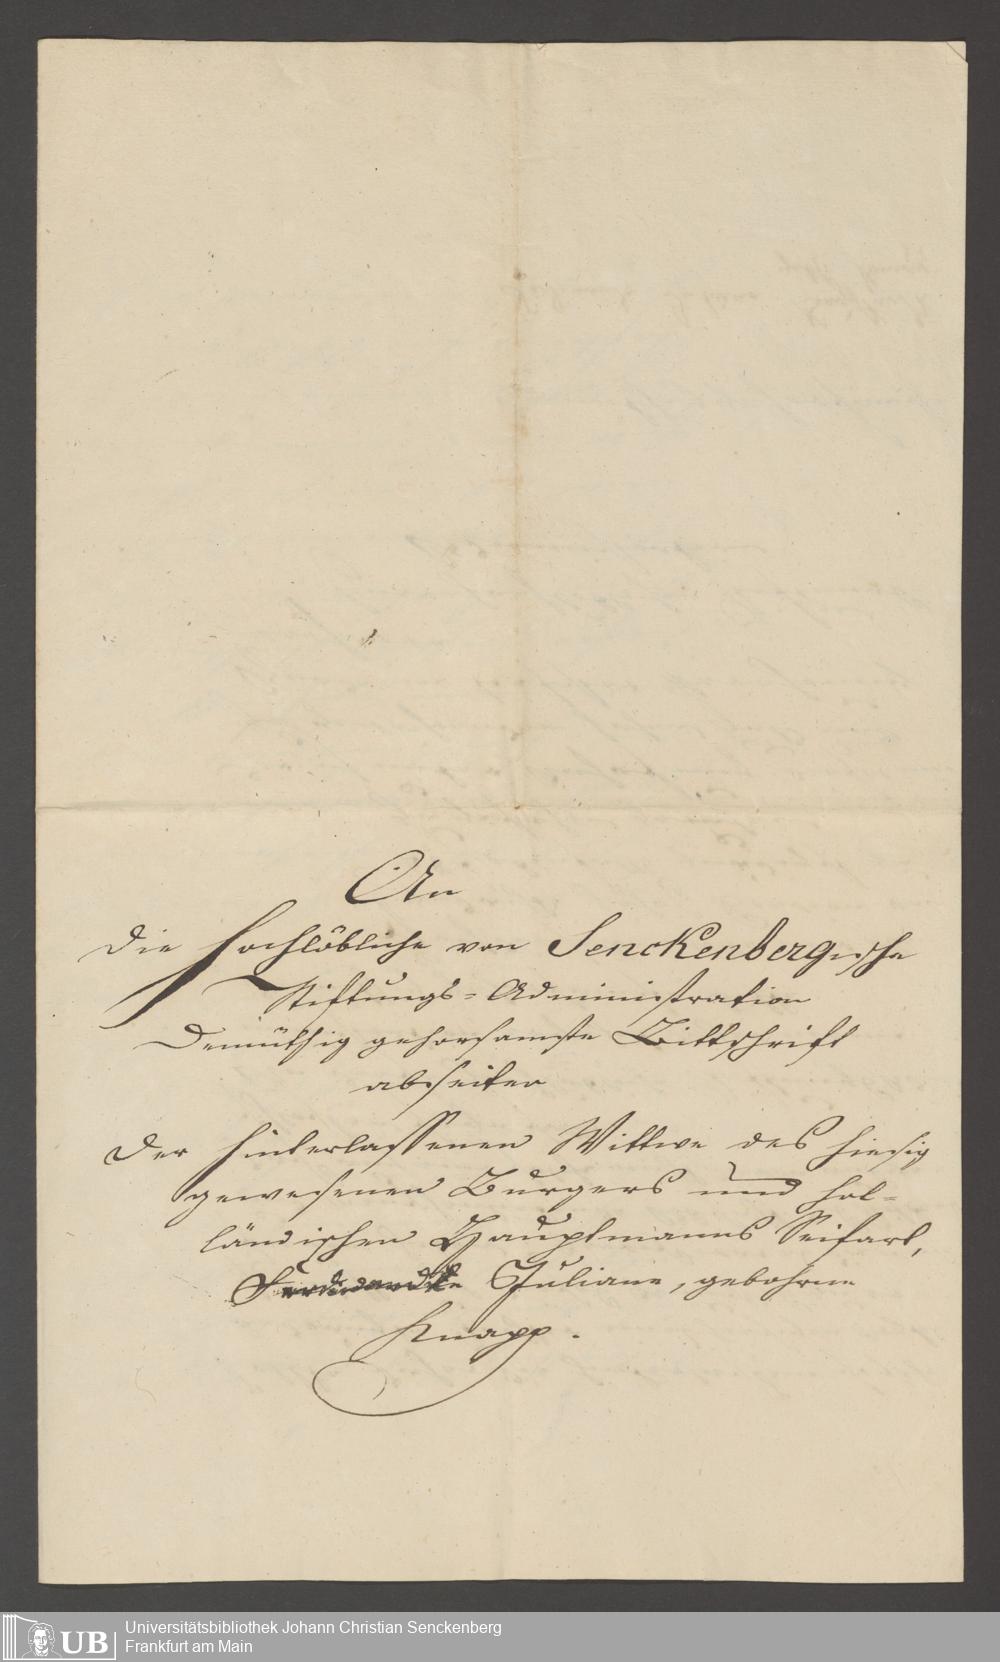 An
die Hochlöbliche von Senckenbergische
Stiftungs-Administration
Demüthig gehorsamste Bittschrift
abseiten
der hinterlassenen Wittwe des hiesig
gewesenen Burgers und hol-
ländischen Hauptmanns Seifart,
Juliane, gebohrne
Knapp.
UB Universitätsbibliothek Johann Christian Senckenberg
Frankfurt am Main